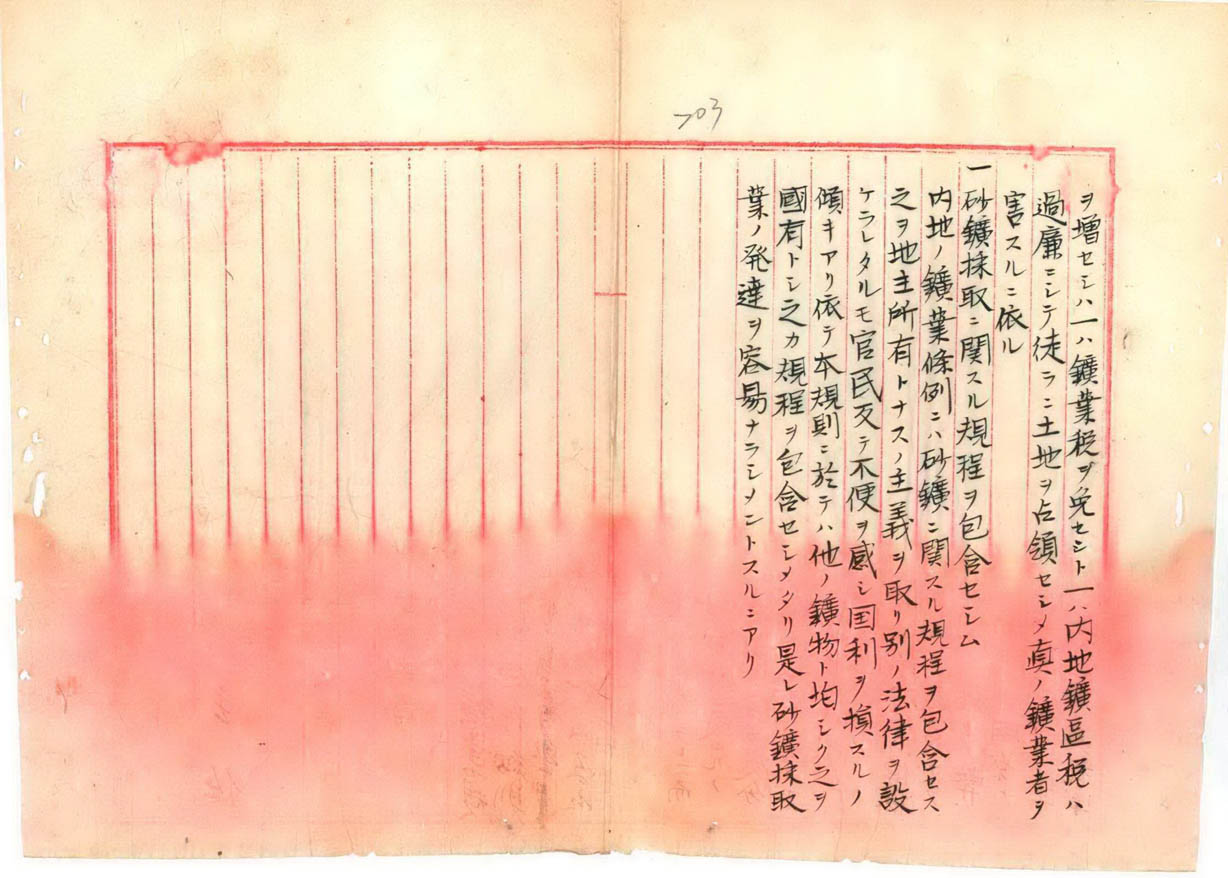 703
ヲ増セシハ一ハ鑛業税ヲ免セシト一ハ内地鑛區税ハ
過廉ニシテ徒ラニ土地ヲ占領セシメ真ノ鑛業者ヲ
害スルニ依ル
一砂鑛採取ニ関スル規程ヲ包含セシム
内地ノ鑛業條例ニハ砂鑛ニ関スル規程ヲ包含セス
之ヲ地主所有トナスノ主義ヲ取リ別ノ法律ヲ設
ケラレタルモ官民反テ不便ヲ感シ国利ヲ損スルノ
傾キアリ依テ本規則ニ於テハ他ノ鑛物ト均シク之ヲ
國有トシ之カ規程ヲ包含セシメタリ是レ砂鑛採取
業ノ発達ヲ容易ナラシメントスルニアリ